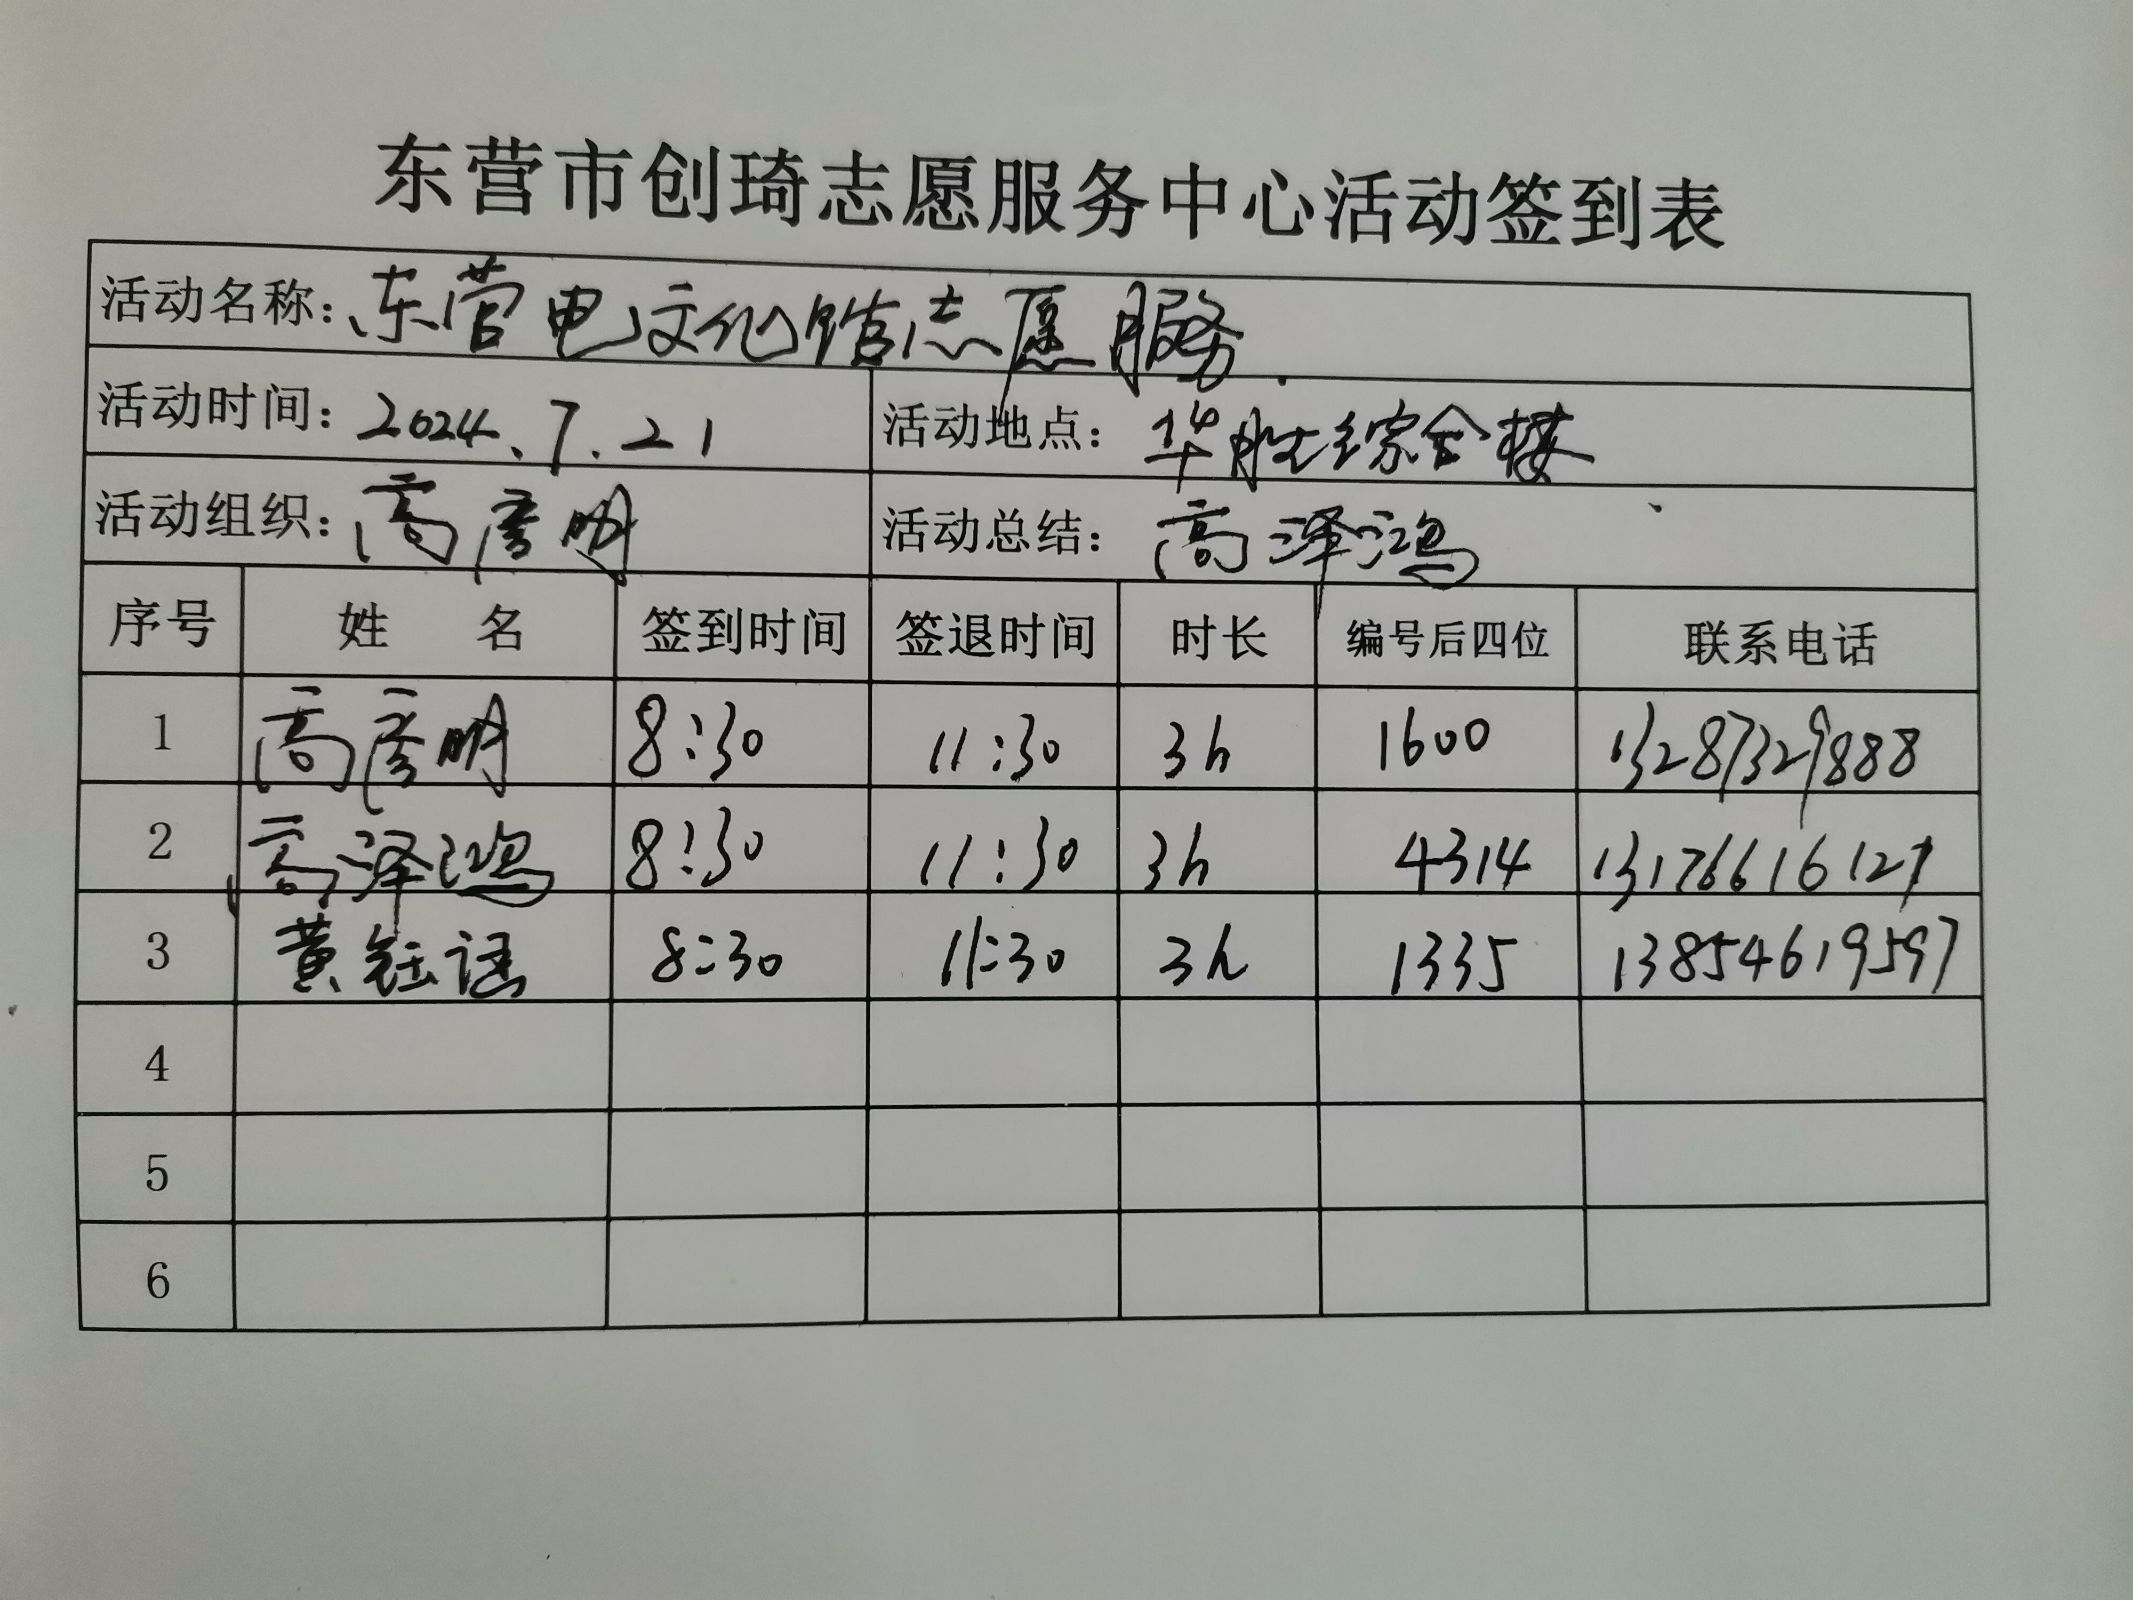 东营市创琦志愿服务中心活动签到表
活动名称：东营电文化馆志愿服务
活动时间：2024.7.21 活动地点：华胜综合楼
活动组织：高彦明 活动总结：高泽鸿
序号 姓 名 签到时间 签退时间 时长 编号后四位 联系电话
1 高彦明 8:30 11:30 3h 1600 13287329888
2 高泽鸿 8:30 11:30 3h 4314 13176616127
3 黄钰 8:30 11:30 3h 1335 13854619597
4
5
6